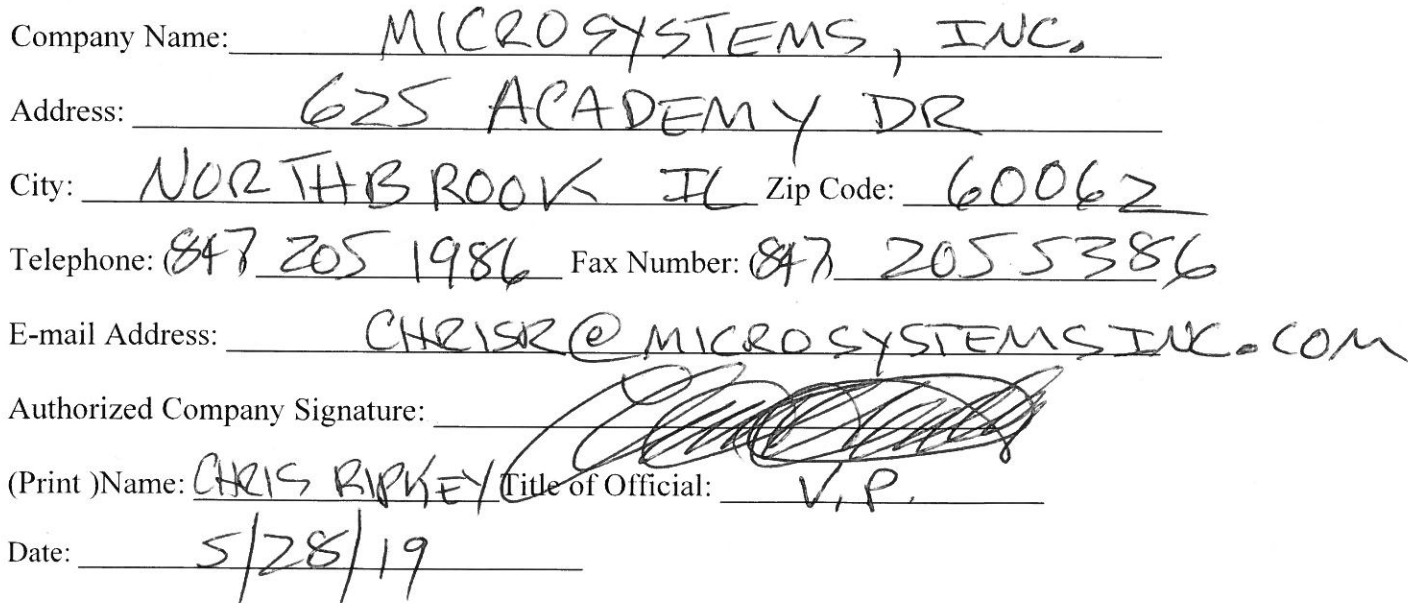 Company Name: MICROSYSTEMS, INC.
Address: 625 ACADEMY DR
City: NORTHBROOK IL Zip Code: 60062
Telephone: (847) 205 1986 Fax Number: (847) 205 5386
E-mail Address: CHRISR@MICROSYSTEMSINC.COM
Authorized Company Signature:
(Print )Name: CHRIS RIPKEY Title of Official: V.P.
Date: 5/28/19